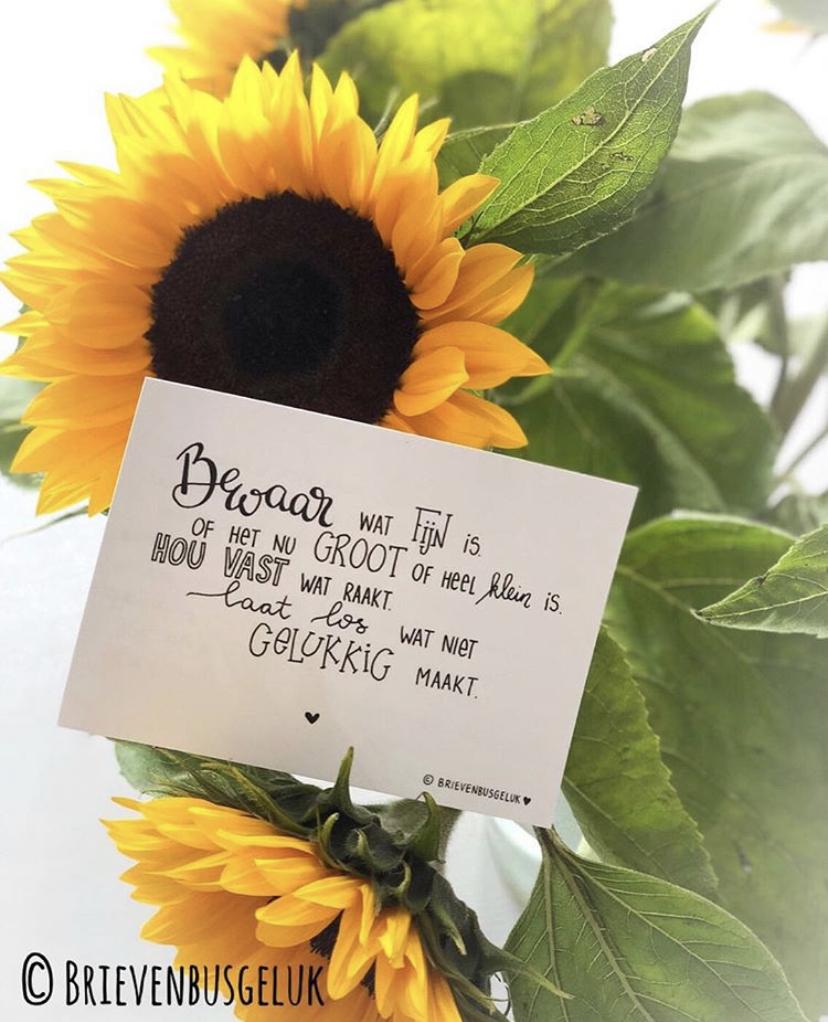 Bewaar WAT FijN is.
OF HET NU GROOT OF HEEL klein is.
HOU VAST WAT RAAKT.
laat los WAT NIET
GELUKKiG MAAKT.
♥
© BRIEVENBUSGELUK ♥
© BRIEVENBUSGELUK